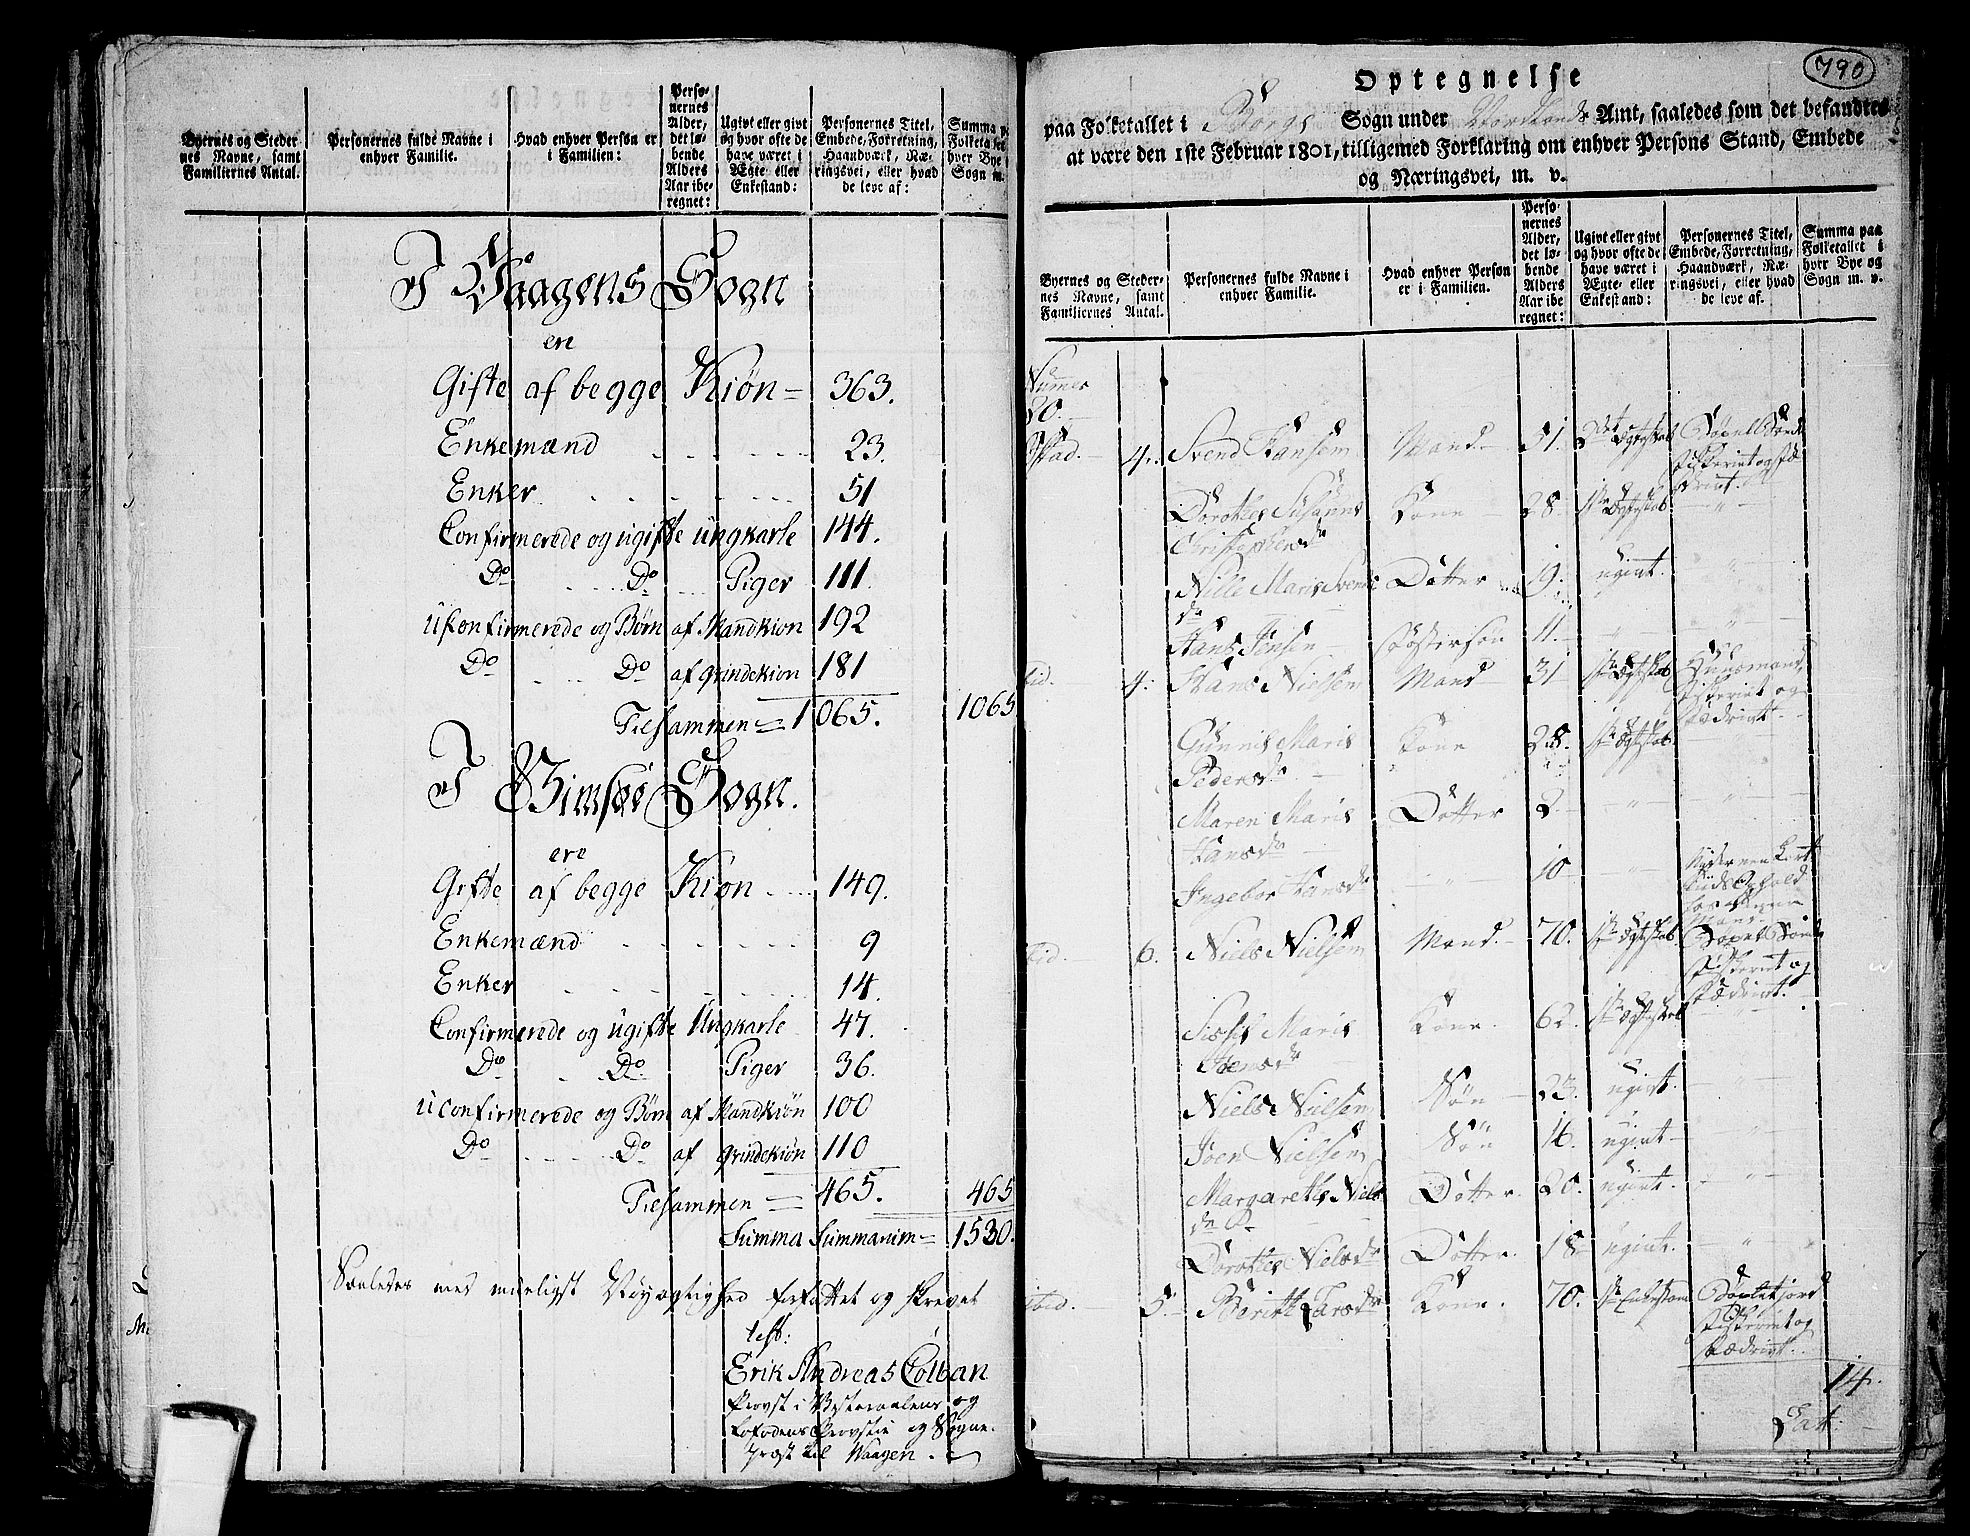 Byernes og Steder-
nes Navne, samt
Familiernes Antal.
Personernes fulde Navne i
enhver Familie.
Hvad enhver Person er
i Familien:
Perso-
nernes
Alder,
det lø-
bende
Alders
Aar ibe-
regnet:
Ugivt eller givt
og hvor ofte de
have været i
Ægte- eller
Enkestand:
Personernes Titel,
Embede, Forretning,
Haandværk, Næ-
ringsvei, eller hvad
de leve af:
Summa p
Folketa
hver Bye
Sogn m.
I Vaagens Sogn
ere
Gifte af begge Kiøn = 363.
Enkemænd 23.
Enker 51
Confirmerede og ugifte ungkarle 144.
Do Do Piger 111.
Uconfirmerede og Børn af Mandkiøn 192
Do Do af Qvindekiøn 181
Tilsammen = 1065. 1065
I Gimsøe Sogn.
ere
Gifte af begge Kiøn 149.
Enkemænd 9
Enker 14.
Confirmerede og Ugifte Ungkarle 47.
Do Do Piger 36.
Uconfirmerede og Børn af Mandkiøn 100
Do Do af Qvindekiøn 110
Tilsammen = 465. 465
Summa Summarum = 1530.
Saaledes med mueligst Nøyagtighed forfattet og skrevet
test:
Erik Andreas Colban
Provst i Vesteraalens og
Lofodens Provstie og Sogne-
præst til Waagen.
790
Optegnelse
paa Folketallet i Borge Sogn under Nordlands Amt, saaledes som det befandtes
at være den 1ste Februar 1801, tilligemed Forklaring om enhver Persons Stand, Embede
og Næringsvei, m. v.
Byernes og Steder-
nes Navne, samt
Familiernes Antal.
Personernes fulde Navne i
enhver Familie.
Hvad enhver Person
er i Familien.
Perso-
nernes
Alder,
det lø-
bende
Alders
Aar ibe-
regnet:
Ugivt eller givt
og hvor ofte de
have været i
Ægte- eller
Enkestand:
Personernes Titel,
Embede, Forretning,
Haandværk, Næ-
ringsvei, eller hvad
de leve af.
Summa paa
Folketallet i
hver Bye og
Sogn m. v.
4. Svend Hansen Mand 51. 2det Ægteskab
Fiskeriet og
Dorothea Susanna Kone 28 1ste Ægteskab
Christophersdr
Nille Maria Svends Dotter 19. ugivt.
dr
Hans Jensen Søstersøn 11.
4. Hans Nielsen Mand 31 1ste Ægteskab Huusmand,
Fiskeriet og
Fædrivt.
Gunnil Maria Kone 28. 1ste Ægteskab
Pedersdr
Maren Maria Dotter 2
Hansdr
Ingebor Hansdr 10
6. Niels Nielsen Mand 70. 1ste Ægteskab
Fiskeriet og
Fædrivt.
Sissel Maria Kone 62. 1ste Ægteskab
Joensdr
Niels Nielsen Søn 23. ugivt.
Joen Nielsen Søn 16. ugivt
Margaretha Niels Dotter. 20. ugivt.
dr
Dorothea Nielsdr Dotter. 18 ugivt.
5. Berith Larsdr Kone. 70. 1ste Enkestand
Fiskeriet og
Fædrivt.
14.
Lat: